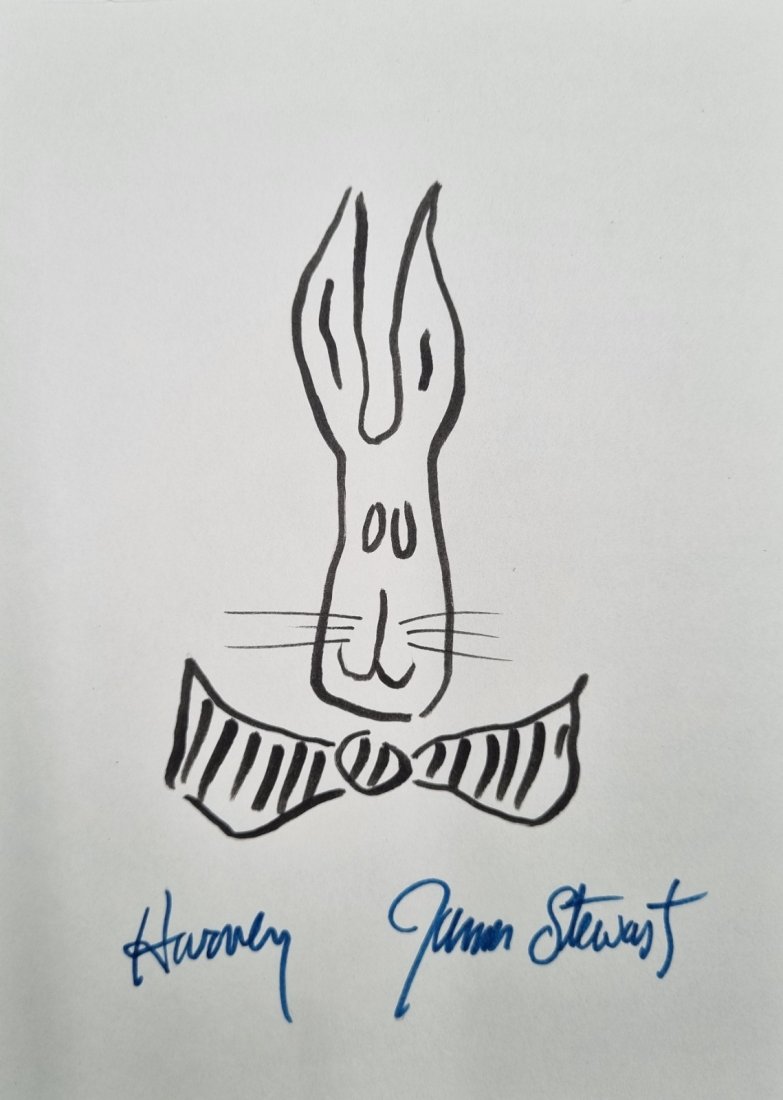 Harvey James Stewart